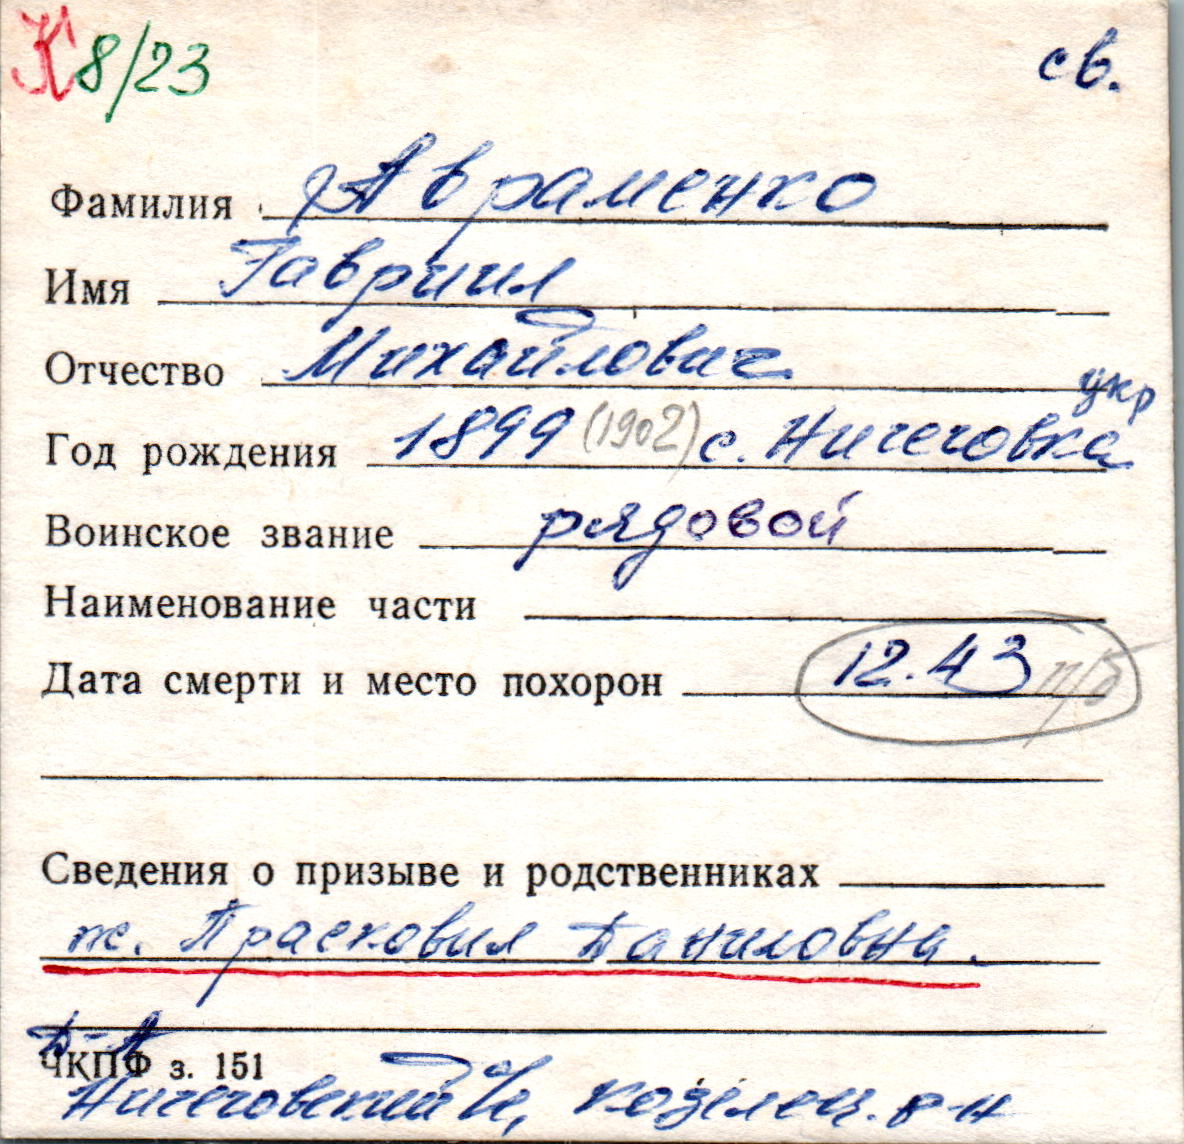 К 8/23 св.
Фамилия Авраменко
Имя Гавриил
Отчество Михайлович
укр
Год рождения 1899 (1902) с. Ничеговка
Воинское звание рядовой
Наименование части
Дата смерти и место похорон 12.43 п/б
Сведения о призыве и родственниках
ж. Прасковия Даниловна.
ЧКПФ з. 151
Ничеговский с/с, козелец. р-н